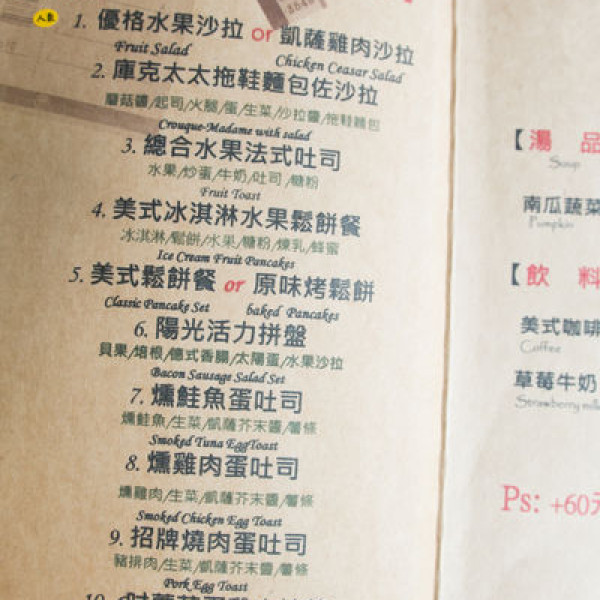 人氣
1. 優格水果沙拉 or 凱薩雞肉沙拉
Fruit Salad
Chicken Ceasar Salad
2. 庫克太太拖鞋麵包佐沙拉
蘑菇醬/起司/火腿/蛋/生菜/沙拉醬/拖鞋麵包
Crouque-Madame with salad
3. 總合水果法式吐司
水果/炒蛋/牛奶/吐司/糖粉
Fruit Toast
4. 美式冰淇淋水果鬆餅餐
冰淇淋/鬆餅/水果/糖粉/煉乳/蜂蜜
Ice Cream Fruit Pancakes
5. 美式鬆餅餐 or 原味烤鬆餅
Classic Pancake Set baked Pancakes
6. 陽光活力拼盤
貝果/培根/德式香腸/太陽蛋/水果沙拉
Bacon Sausage Salad Set
7. 燻鮭魚蛋吐司
燻鮭魚/生菜/凱薩芥末醬/薯條
Smoked Tuna EggToast
8. 燻雞肉蛋吐司
燻雞肉/生菜/凱薩芥末醬/薯條
Smoked Chicken Egg Toast
9. 招牌燒肉蛋吐司
豬排肉/生菜/凱薩芥末醬/薯條
Pork Egg Toast
10.
【湯 品
Soup
南瓜蔬菜
Pumpkin
【飲 料
美式咖啡
Coffee
草莓牛奶
Strawberry milk
Ps: +60元